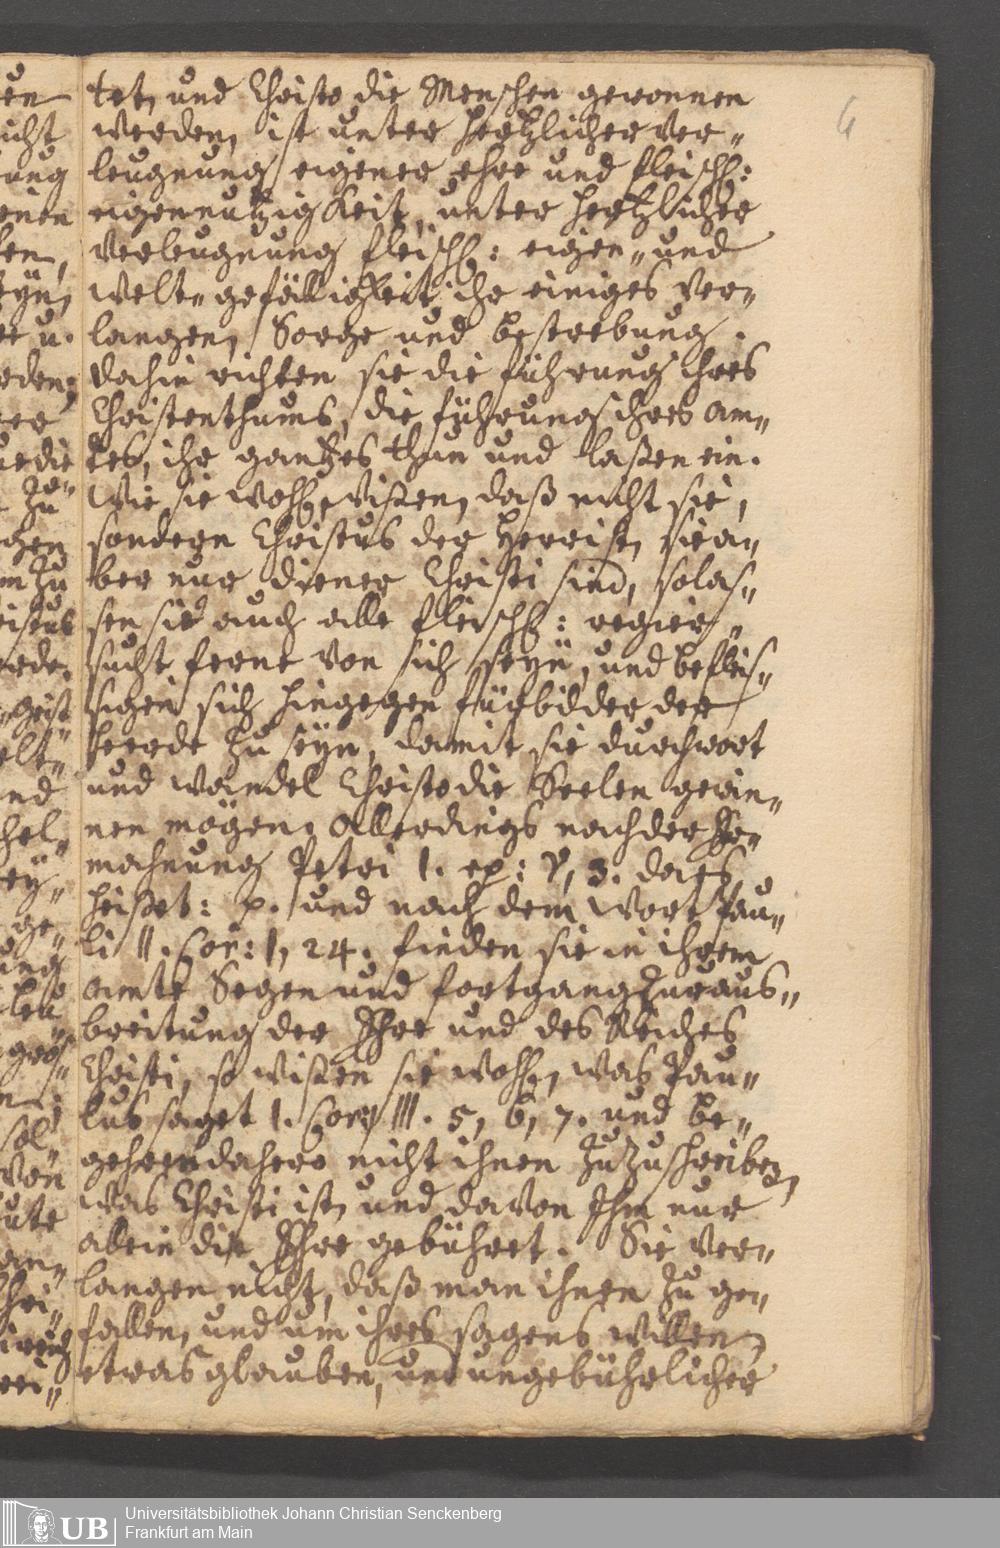 6
tet, und Christo die Menschen gewonnen
werden, ist unter hertzlicher ver-
leugnung eigener ehre und fleischl:
eigennutzigkeit, unter hertzlicher
verleugnung fleischl: eigen- und
welt-gefälligkeit ihr einiges ver-
langen, Sorge und bestrebung.
dahin richten sie die führung ihres
Christenthums, die führung ihres am-
tes, ihr gantzes thun und laßen ein.
Wie sie wohl wißen, daß nicht sie,
sondern Christus der Herr ist, sie a-
ber nur diener Christi sind, so las-
sen sie auch alle fleischl: regier-
sucht ferne von sich seyn, und befleis-
sigen sich hingegen fürbilder der
heerde zu seyn, damit sie durch wort
und wandel Christo die Seelen gewin-
nen mögen. Allerdings nach der Er-
mahnung Petri 1. ep: V, 3. da es
heißet: p. und nach dem Wort Pau-
li II. Cor: 1, 24. finden sie in ihrem
amte Segen und fortgang zur aus-
breitung der Ehre und des Reiches
Christi, so wißen sie wohl, was Pau-
lus saget 1. Cor: III. 5, 6, 7. und be-
gehren dahero nicht ihnen zuzuschreiben,
was Christi ist, und davon Ihm nur
allein die Ehre gebühret. Sie ver-
langen nicht, daß man ihnen zu ge-
fallen, und um ihres sagens willen,
etwas glauben, und ungebührlicher
UB
Universitätsbibliothek Johann Christian Senckenberg
Frankfurt am Main